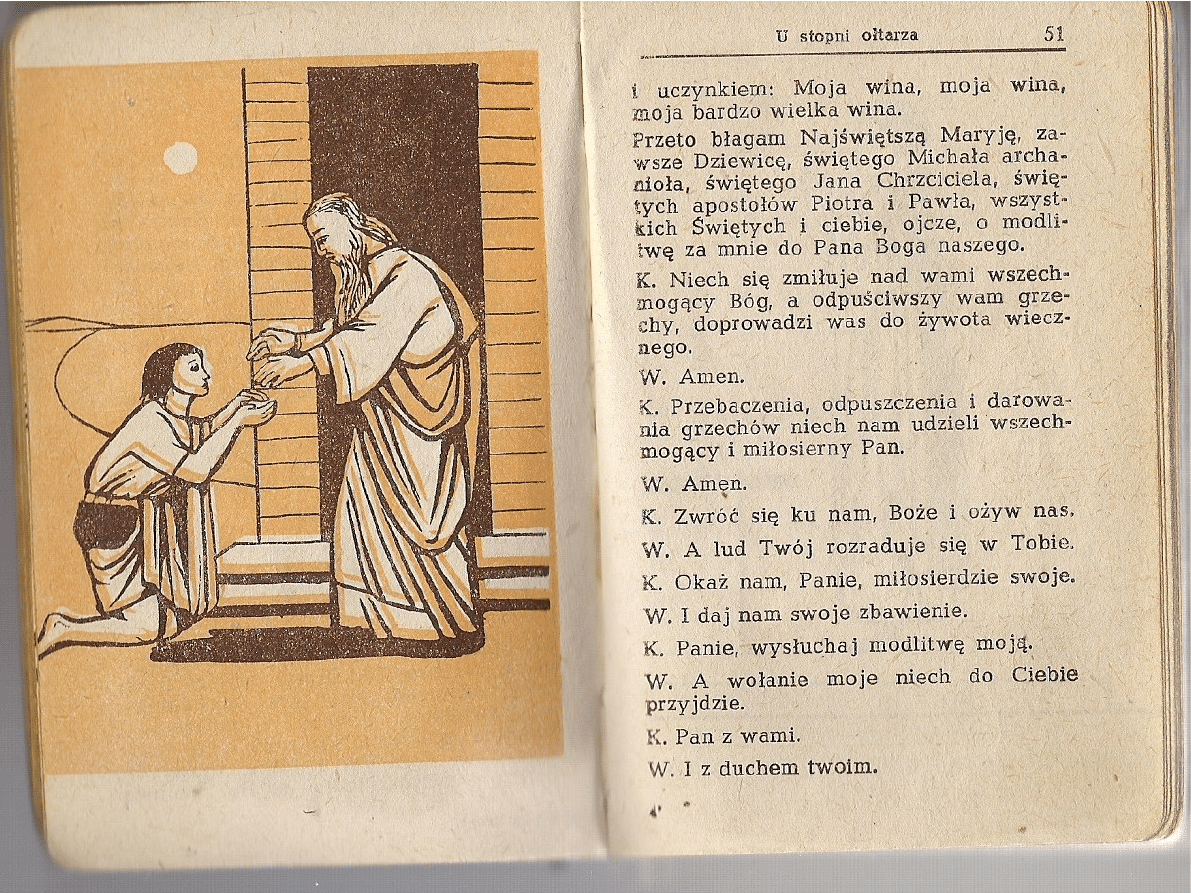 U stopni ołtarza 51
i uczynkiem: Moja wina, moja wina,
moja bardzo wielka wina.
Przeto błagam Najświętszą Maryję, za-
wsze Dziewicę, świętego Michała archa-
nioła, świętego Jana Chrzciciela, świę-
tych apostołów Piotra i Pawła, wszyst-
kich Świętych i ciebie, ojcze, o modli-
twę za mnie do Pana Boga naszego.
K. Niech się zmiłuje nad wami wszech-
mogący Bóg, a odpuściwszy wam grze-
chy, doprowadzi was do żywota wiecz-
nego.
W. Amen.
K. Przebaczenia, odpuszczenia i darowa-
nia grzechów niech nam udzieli wszech-
mogący i miłosierny Pan.
W. Amen.
K. Zwróć się ku nam, Boże i ożyw nas.
W. A lud Twój rozraduje się w Tobie.
K. Okaż nam, Panie, miłosierdzie swoje.
W. I daj nam swoje zbawienie.
K. Panie, wysłuchaj modlitwę moją.
W. A wołanie moje niech do Ciebie
przyjdzie.
K. Pan z wami.
W. I z duchem twoim.